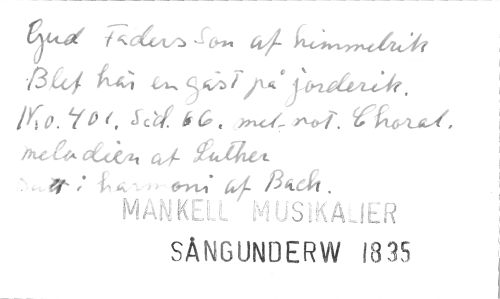 Gud Faders Son af himmelrik
Blef här en gäst på jorderik.
No. 401. Sid. 66. met. not. Choral.
melodien af Luther
satt i harmoni af Bach.
MANKELL MUSIKALIER
SÅNGUNDERW 1835